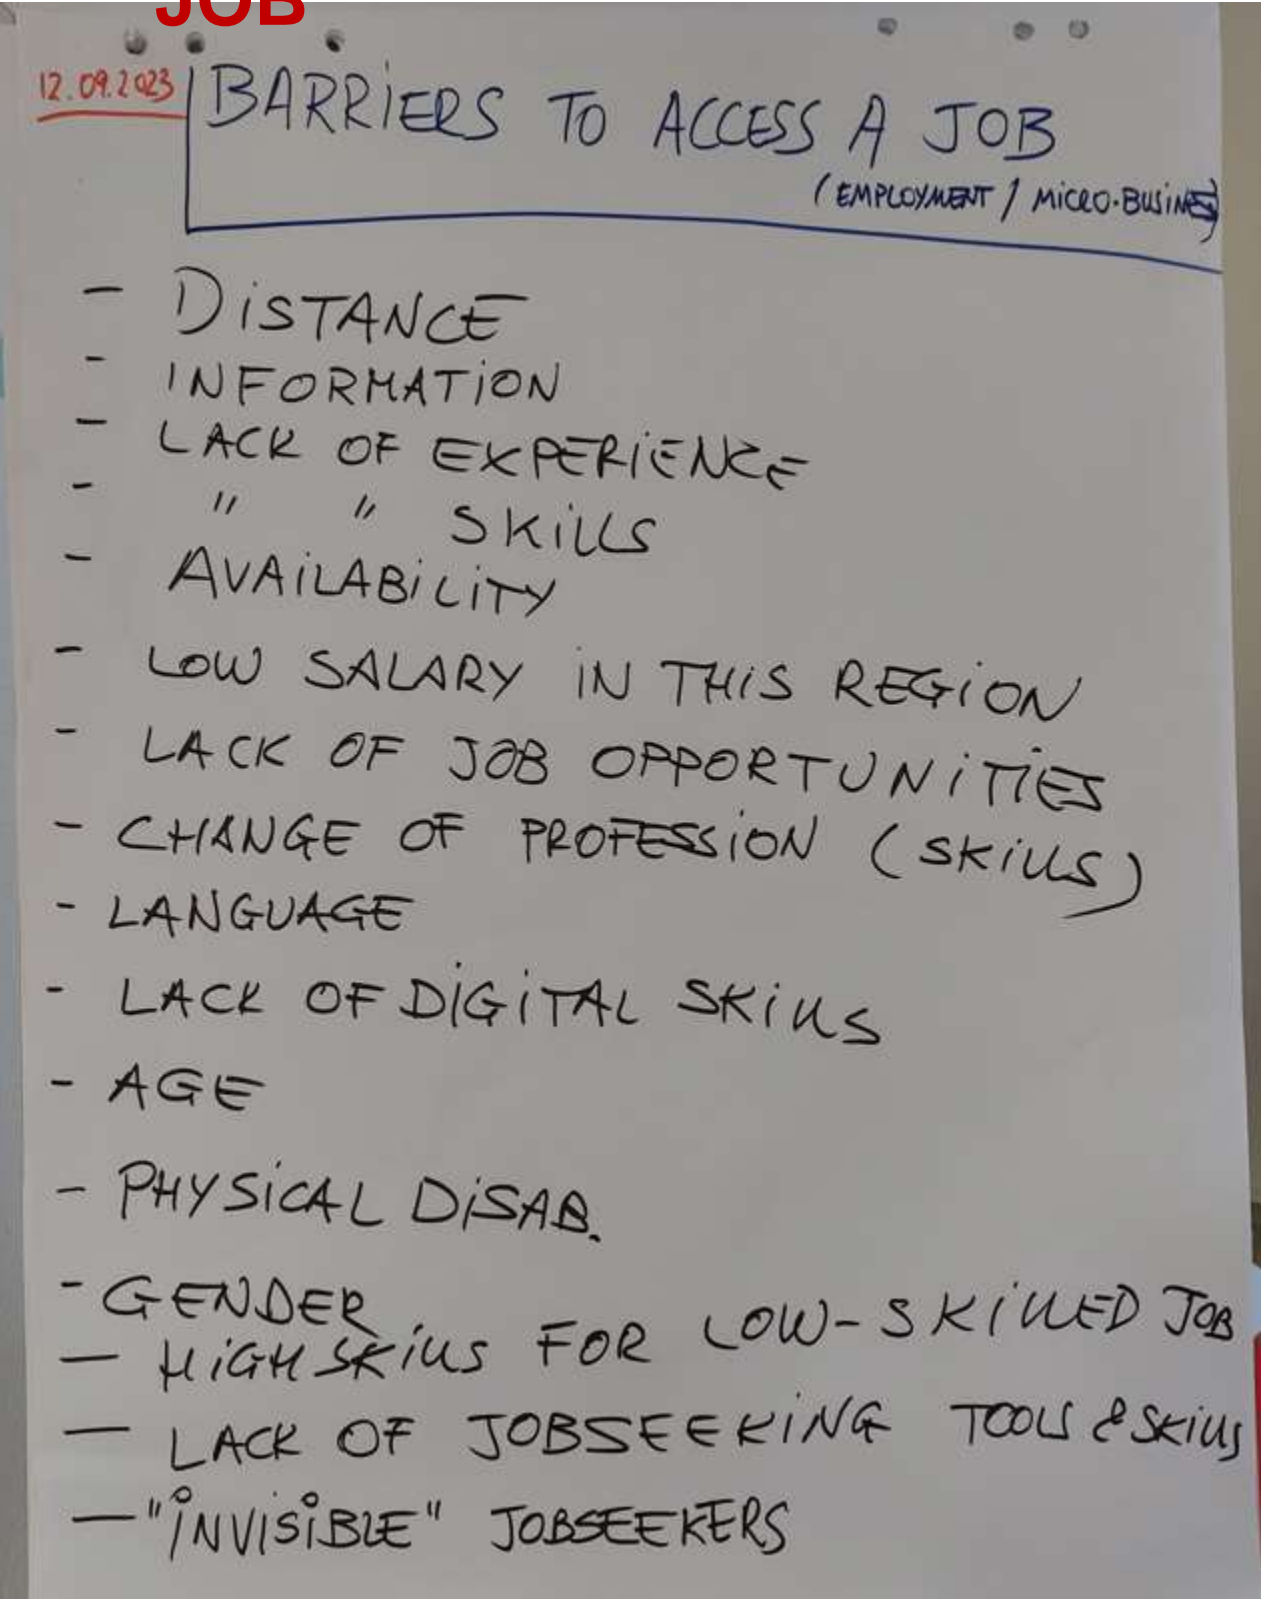 JOB
12.09.2023
BARRIERS TO ACCESS A JOB
(EMPLOYMENT / MICRO-BUSINES)
- DISTANCE
- INFORMATION
- LACK OF EXPERIENCE
- " " SKILLS
- AVAILABILITY
- LOW SALARY IN THIS REGION
- LACK OF JOB OPPORTUNITIES
- CHANGE OF PROFESSION (SKILLS)
- LANGUAGE
- LACK OF DIGITAL SKILLS
- AGE
- PHYSICAL DISAB.
- GENDER
- HIGH SKILLS FOR LOW-SKILLED JOB
- LACK OF JOBSEEKING TOOLS & SKILLS
- "INVISIBLE" JOBSEEKERS